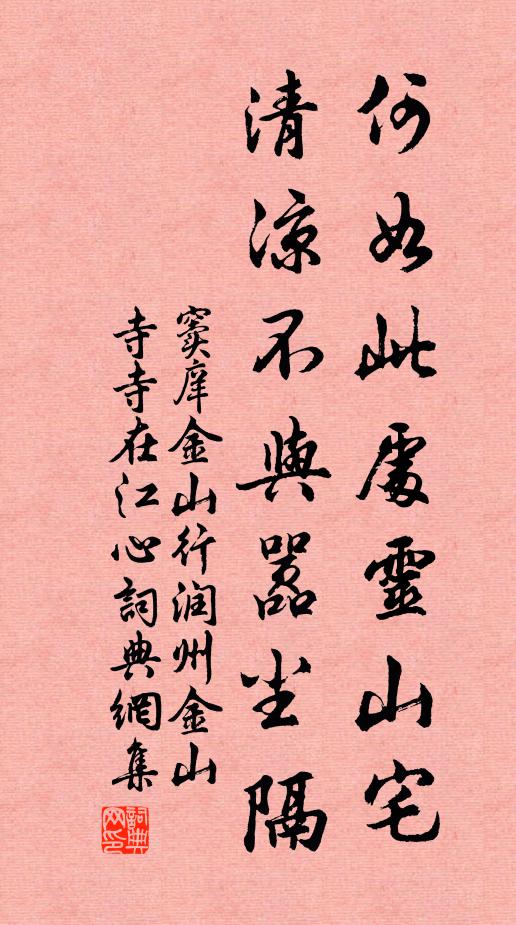 何如此處靈山宅
清涼不與囂尘隔
竇庠金山行润州金山
寺寺在江心詞典網集
詞典网印